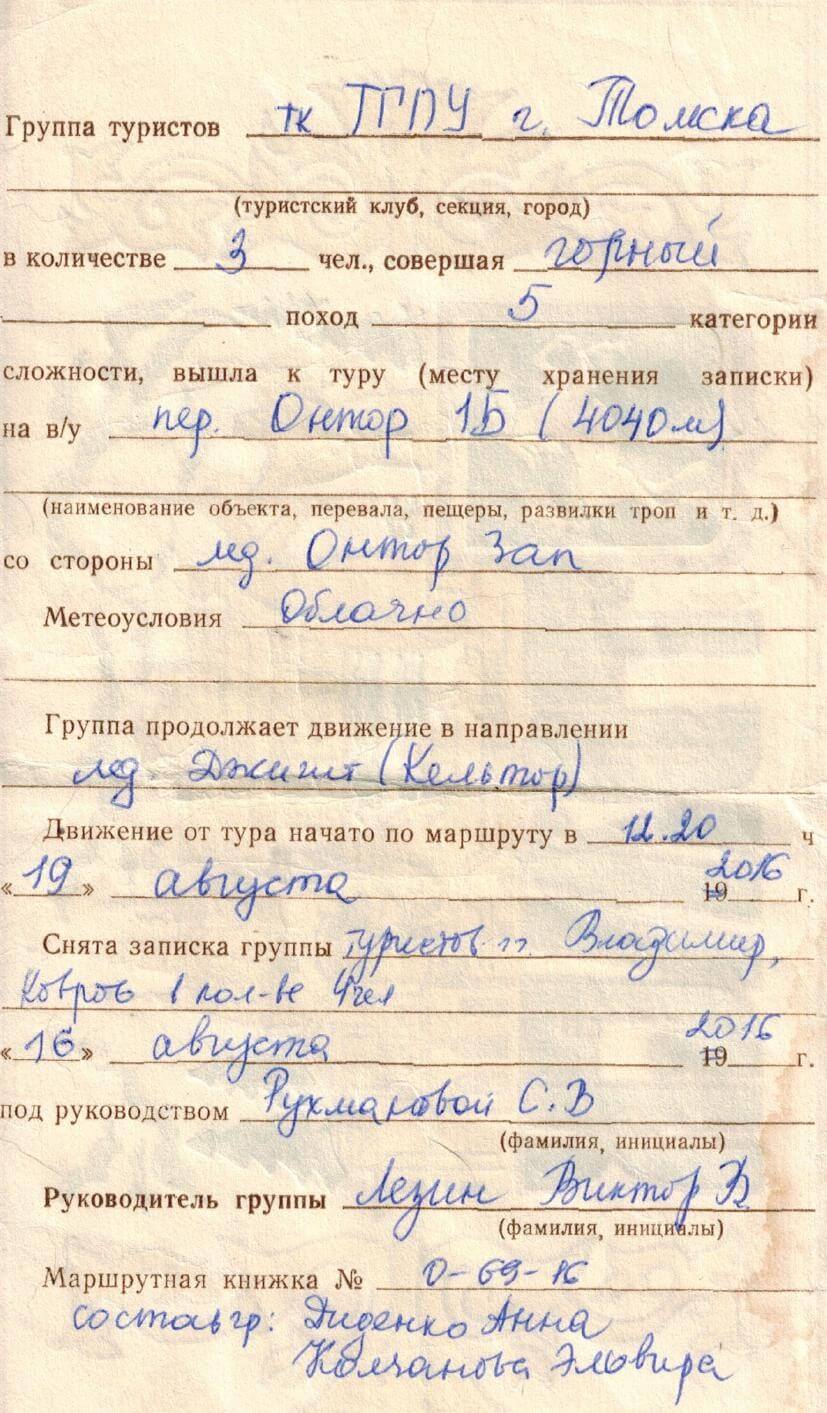 Группа туристов тк ТГПУ г. Томска
(туристский клуб, секция, город)
в количестве 3 чел., совершая горный
поход 5 категории
сложности, вышла к туру (месту хранения записки)
на в/у пер. Онтор 1Б (4040м)
(наименование объекта, перевала, пещеры, развилки троп и т. д.)
со стороны лед. Онтор Зап
Метеоусловия Облачно
Группа продолжает движение в направлении
лед. Джигит (Кельтор)
Движение от тура начато по маршруту в 12.20 ч
«19» августа 19 2016 г.
Снята записка группы туристов гг. Владимир,
Ковров в кол-ве 4чел
«16» августа 19 2016 г.
под руководством Рухмаковой С.В
(фамилия, инициалы)
Руководитель группы Лезин Виктор В
(фамилия, инициалы)
Маршрутная книжка № 0-69-16
состав гр: Диденко Анна
Колчанова Эльвира